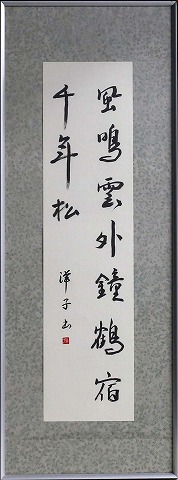 風鳴雲外鐘鶴宿
千年松
洋子書